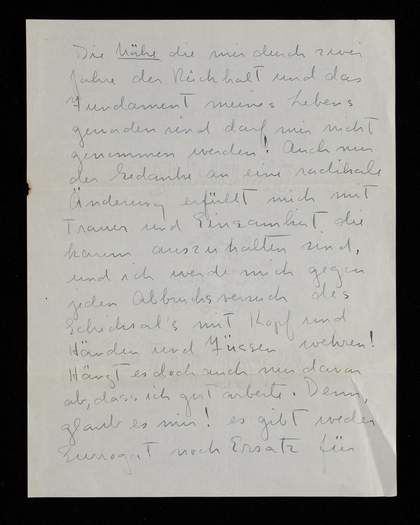 Die Nähe die mir durch zwei
Jahre der Rückhalt und das
Fundament meines Lebens
geworden sind darf mir nicht
genommen werden! Auch nur
der Gedanke an eine radikale
Änderung erfüllt mich mit
Trauer und Einsamkeit die
kaum auszuhalten sind,
und ich werde mich gegen
jeden Abbruchsversuch des
Schicksal's mit Kopf und
Händen und Füssen wehren!
Hängt es doch auch nur davon
ab, dass ich gut arbeite. Denn,
glaub es mir! es gibt weder
Surrogat noch Ersatz für